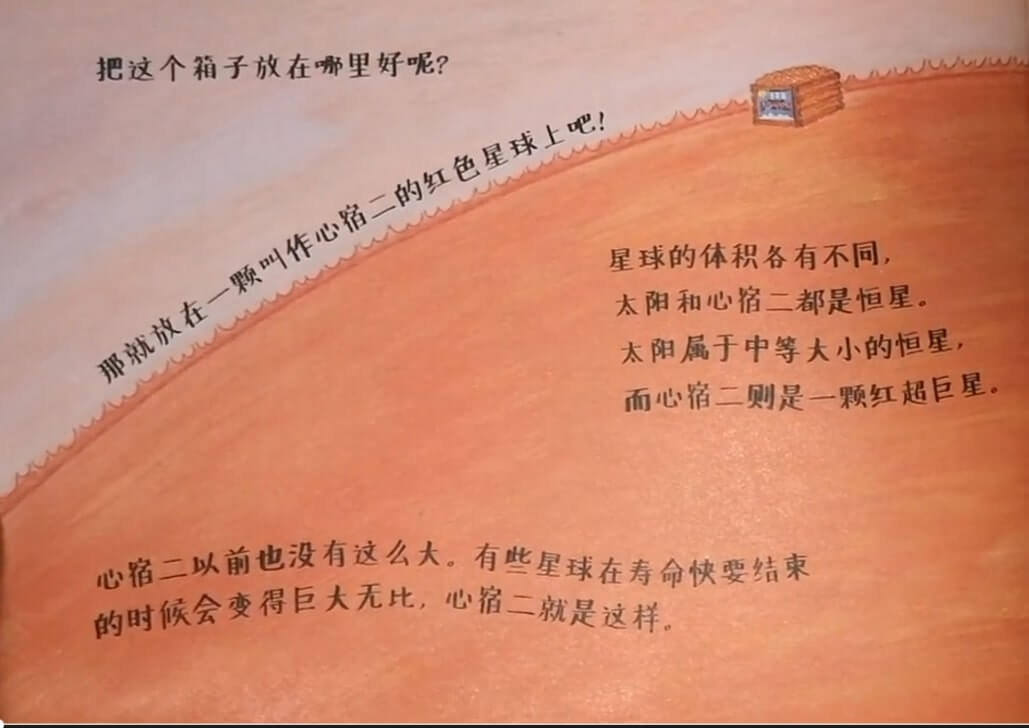 把这个箱子放在哪里好呢？
那就放在一颗叫作心宿二的红色星球上吧！
星球的体积各有不同，
太阳和心宿二都是恒星。
太阳属于中等大小的恒星，
而心宿二则是一颗红超巨星。
心宿二以前也没有这么大。有些星球在寿命快要结束
的时候会变得巨大无比，心宿二就是这样。